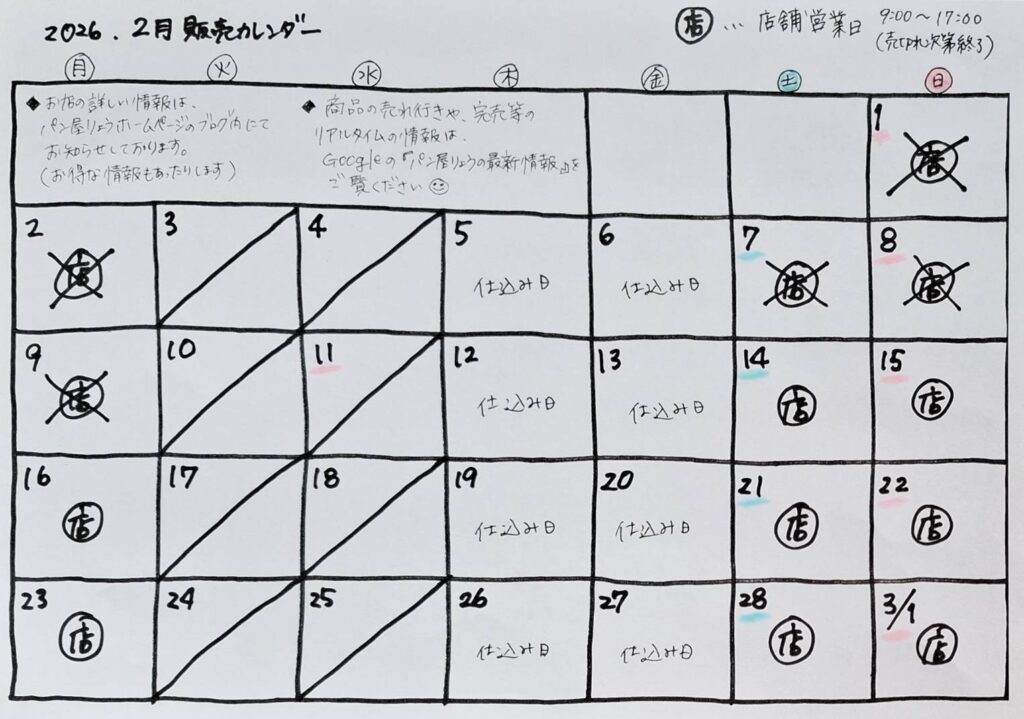 2026.2月 販売カレンダー
店…店舗営業日 9:00～17:00
(売切れ次第終了)
月 火 水 木 金 土 日
◆お店の詳しい情報は、
パン屋りょうホームページのブログ内にて
お知らせしております。
(お得な情報もあったりします)
◆商品の売れ行きや、完売等の
リアルタイムの情報は、
Googleの『パン屋りょうの最新情報』を
ご覧ください
1
店
2 3 4 5 6 7 8
店 仕込み日 仕込み日 店 店
9 10 11 12 13 14 15
店 仕込み日 仕込み日 店 店
16 17 18 19 20 21 22
店 仕込み日 仕込み日 店 店
23 24 25 26 27 28 3/1
店 仕込み日 仕込み日 店 店